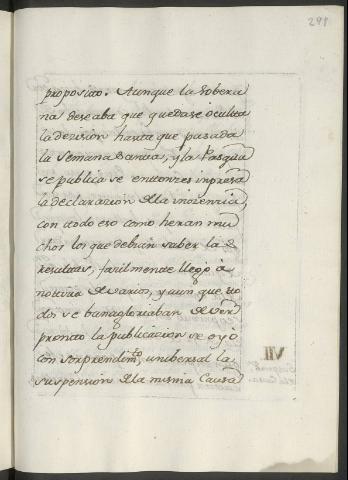 291
proposito. Aunque la sobera
na deseaba que quedase oculta
la decision hasta que pasada
la Semana Santa, y la Pasqua
se publica se enttonzes inpresa
la declarazion de la inozenzia,
con ttodo eso como heran mu
chos los que debian saber la
resultas, fazilmente llegò à
notizia de varios, y aun que to
dos se banagloriaban de ver
pronto la publicacion se oyò
con sorprendimto. unibersal la
suspension de la misma Causa
VII